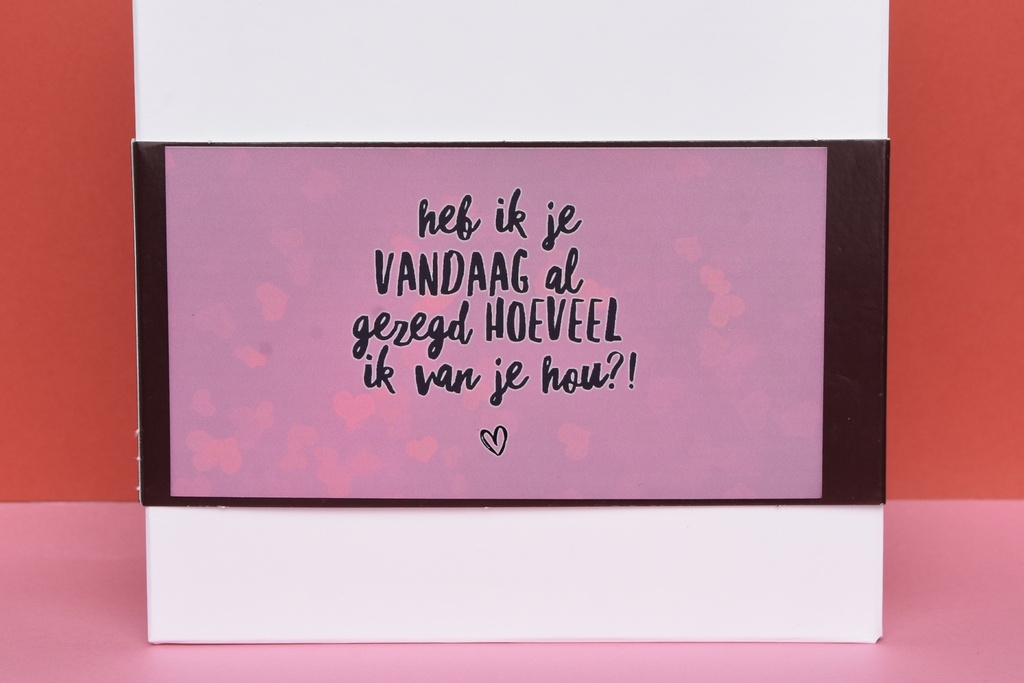 heb ik je
VANDAAG al
gezegd HOEVEEL
ik van je hou?!